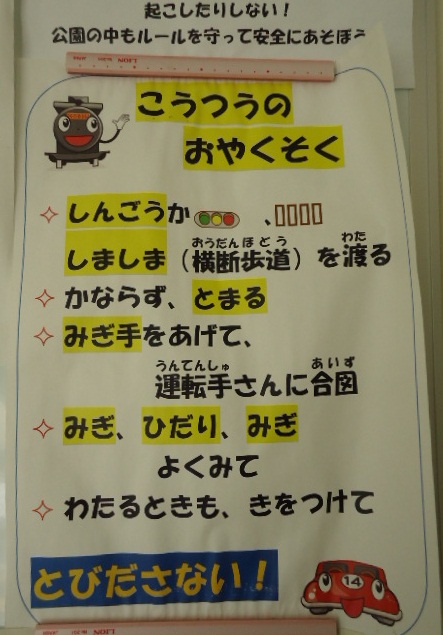 起こしたりしない！
公園の中もルールを守って安全にあそぼう
こうつうの
おやくそく
しんごうか 、
しましま（横断歩道）を渡る
おうだんほどう わた
かならず、とまる
みぎ手をあげて、
うんてんしゅ あいず
運転手さんに合図
みぎ、ひだり、みぎ
よくみて
わたるときも、きをつけて
とびださない！
14